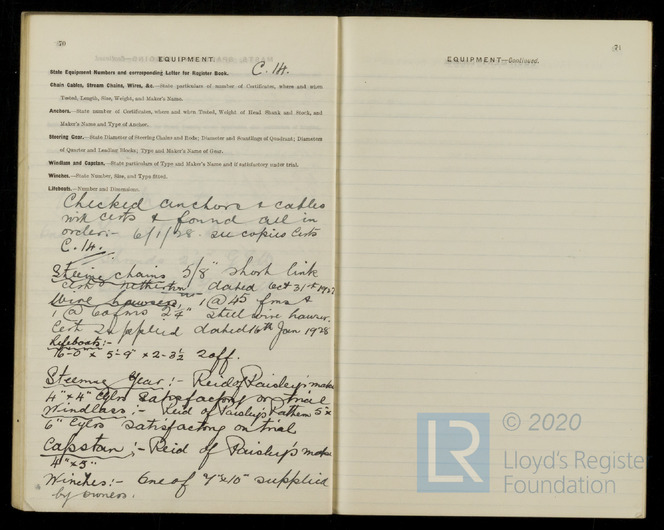 70
EQUIPMENT.
State Equipment Numbers and corresponding Letter for Register Book. C. 14.
Chain Cables, Stream Chains, Wires, &c.—State particulars of number of Certificates, where and when
Tested, Length, Size, Weight, and Maker's Name.
Anchors.—State number of Certificates, where and when Tested, Weight of Head Shank and Stock, and
Maker's Name and Type of Anchor.
Steering Gear.—State Diameter of Steering Chains and Rods; Diameter and Scantlings of Quadrant; Diameters
of Quarter and Leading Blocks; Type and Maker's Name of Gear.
Windlass and Capstan.—State particulars of Type and Maker's Name and if satisfactory under trial.
Winches.—State Number, Size, and Type fitted.
Lifeboats.—Number and Dimensions.
Checked anchors & cables
with certs & found all in
order:- 6/1/28. see copies Certs
C. 14.
Steering chains 5/8" short link
Cert dated Oct 31st 1927
Wire hawsers, 1 @ 45 fms &
1 @ 60 fms 2¼" steel wire hawser.
Cert supplied dated 16th Jan 1928
Lifeboats:-
16-0" x 5-9" x 2-3½ 2 off.
Steering Gear:- Reid of Paisley's make
4" x 4" Cylrs satisfactory on trial
Windlass:- Reid of Paisley's 5 x
6" Cylrs satisfactory on trial
Capstan:- Reid of Paisley's make
4" x 5"
Winches:- One of 7" x 10" supplied
by owners.
71
EQUIPMENT—Continued.
© 2020
LR
Lloyd's Register
Foundation